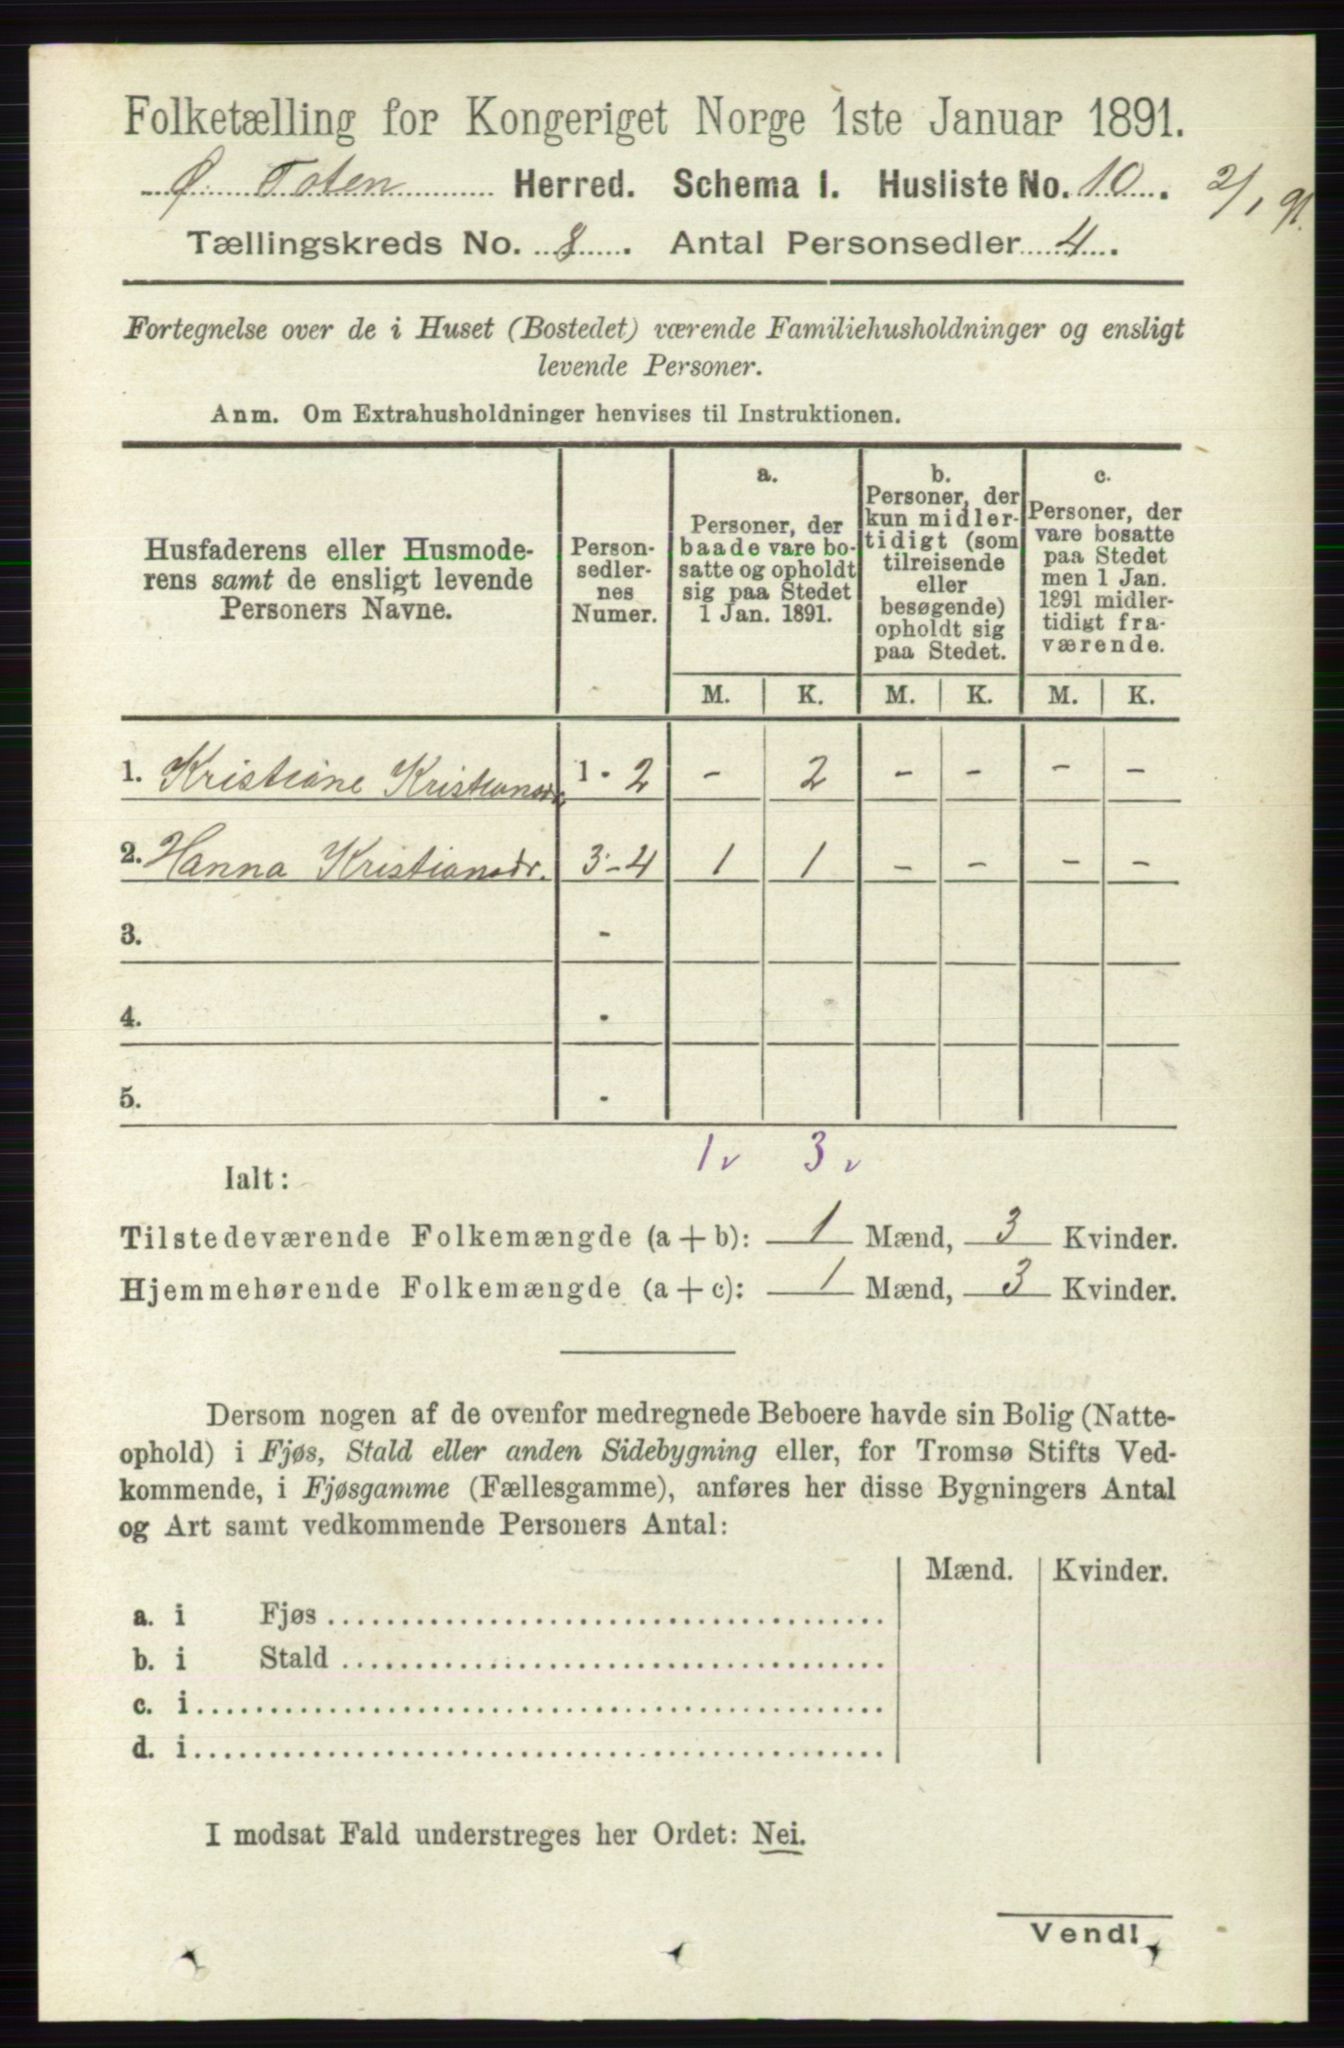 Folketælling for Kongeriget Norge 1ste Januar 1891.
Ø. Toten Herred. Schema I. Husliste No. 10. 2/1 91.
Tællingskreds No. 8. Antal Personsedler 4.
Fortegnelse over de i Huset (Bostedet) værende Familiehusholdninger og ensligt
levende Personer.
Anm. Om Extrahusholdninger henvises til Instruktionen.
Husfaderens eller Husmode-
rens samt de ensligt levende
Personers Navne.
Person-
sedler-
nes
Numer.
a.
Personer, der
baade vare bo-
satte og opholdt
sig paa Stedet
1 Jan. 1891.
b.
Personer, der
kun midler-
tidigt (som
tilreisende
eller
besøgende)
opholdt sig
paa Stedet.
c.
Personer, der
vare bosatte
paa Stedet
men 1 Jan.
1891 midler-
tidigt fra-
værende.
M. K. M. K. M. K.
1. Kristiane Kristiansdr 1 - 2 - 2 - - - -
2. Hanna Kristiansdr. 3 - 4 1 1 - - - -
3. -
4. -
5. -
1 v 3 v
Ialt:
Tilstedeværende Folkemængde (a + b): 1 Mænd, 3 Kvinder.
Hjemmehørende Folkemængde (a + c): 1 Mænd, 3 Kvinder.
Dersom nogen af de ovenfor medregnede Beboere havde sin Bolig (Natte-
ophold) i Fjøs, Stald eller anden Sidebygning eller, for Tromsø Stifts Ved-
kommende, i Fjøsgamme (Fællesgamme), anføres her disse Bygningers Antal
og Art samt vedkommende Personers Antal:
Mænd. Kvinder.
a. i Fjøs
b. i Stald
c. i
d. i
I modsat Fald understreges her Ordet: Nei.
Vend!